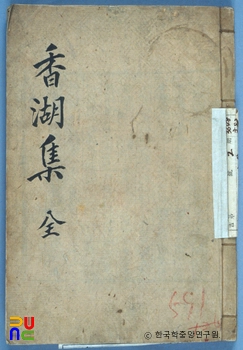 香湖集 全
551
© 한국학중앙연구원